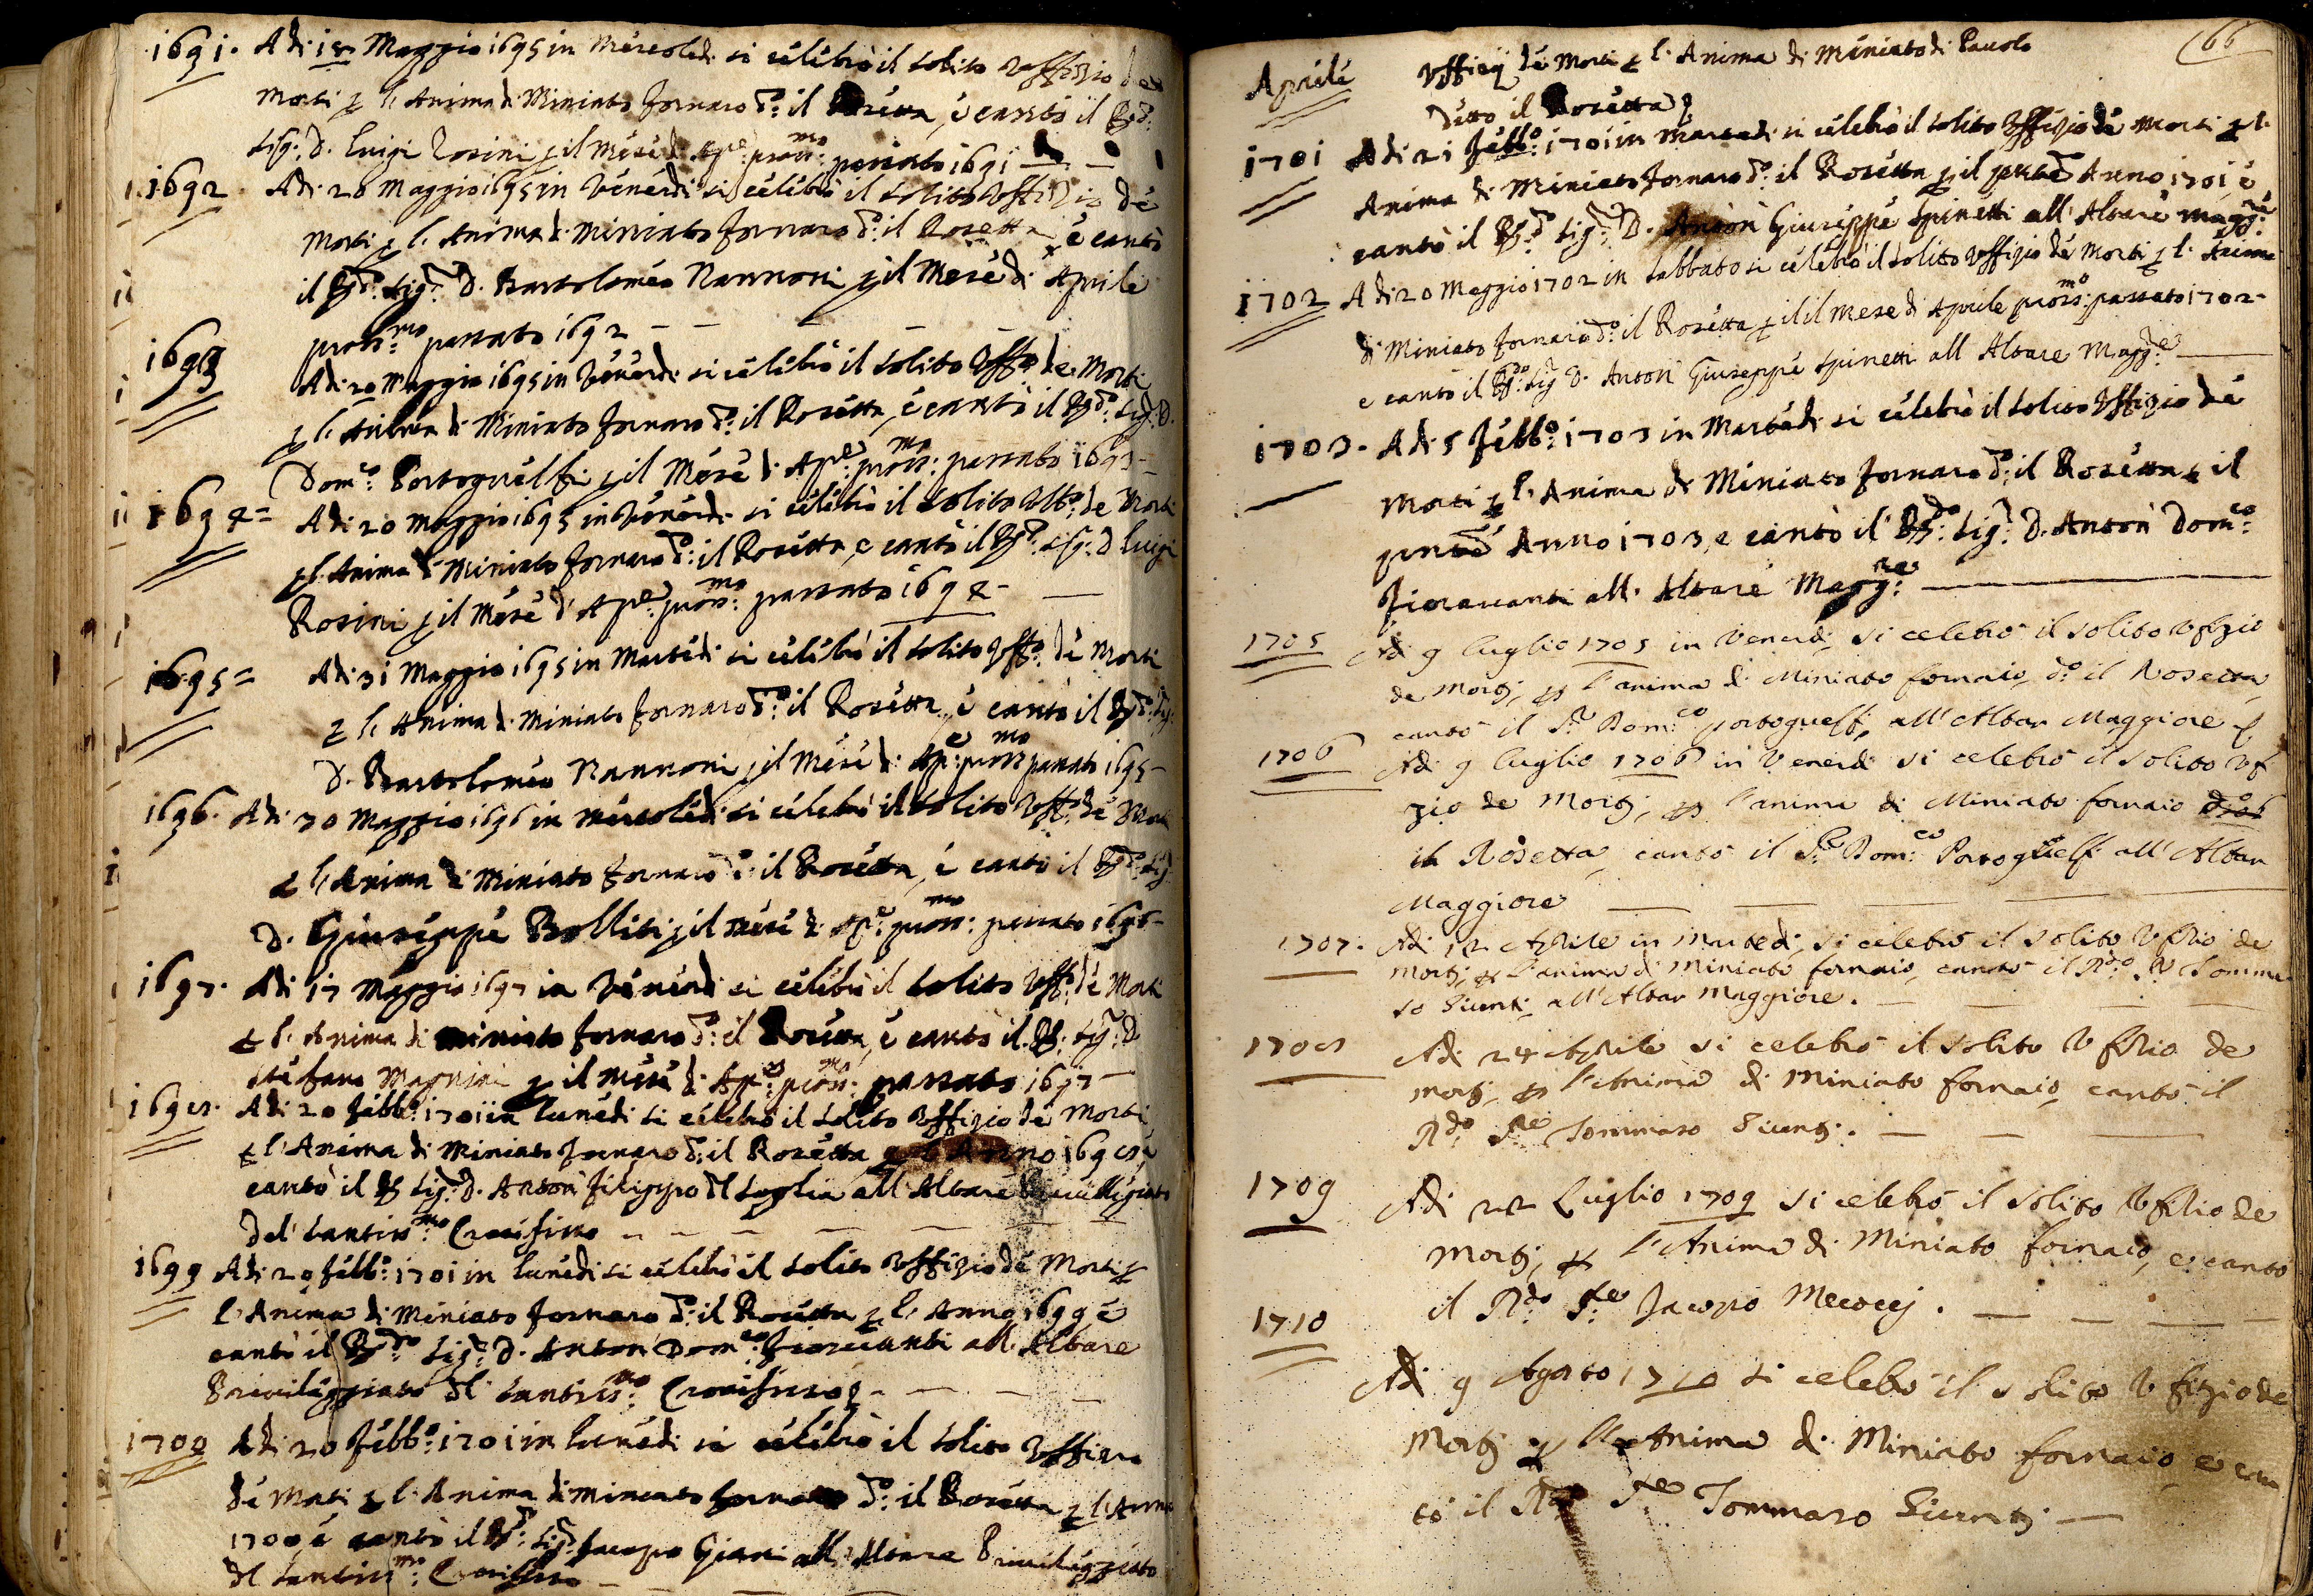 1691. Adi 18 Maggio 1695 in Mercoledi si celebrò il solito Vffizio de
Morti p l'Anima di Miniato fornaro d.º il Rosetta, e cantò il R.do
Sig.r D. Luigi Rosini p il Mese di Ap.e pross.mo passato 1691
1692. Adi 20 Maggio 1695 in Venerdi si celebrò il solito Vffizio de
Morti p l'Anima di Miniato fornaro d.º il Rosetta, e cantò
il R.do Sig.r D. Bartolomeo Nannoni p il Mese di Aprile
pross.mo passato 1692
1693 Adi 20 Maggio 1695 in Venerdi si celebrò il solito Vff.º de Morti
p l'Anima di Miniato fornaro d.º il Rosetta, e cantò il R.do Sig.r D.
Dom.co Portoguelfi p il Mese di Ap.e pross.mo passato 1693
1694= Adi 20 Maggio 1695 in Venerdi si celebrò il solito Vff.º de Morti
p l'Anima di Miniato fornaro d.º il Rosetta, e cantò il R.do Sig.r D Luigi
Rosini p il Mese d'Ap.e pross.mo passato 1694
1695= Adi 31 Maggio 1695 in Martedi si celebrò il solito Vff.º de Morti
p l'Anima di Miniato fornaro d.º il Rosetta, e cantò il R.do Sig.r
D. Bartolomeo Nannoni p il Mese di Ap.e pross.mo passato 1695
1696. Adi 30 Maggio 1696 in Mercoledi si celebrò il solito Vff.º de Morti
p l'Anima di Miniato fornaro d.º il Rosetta, e cantò il R.do Sig.r
D. Giuseppe Bolliti p il Mese di Ap.e pross.mo passato 1696
1697. Adi 17 Maggio 1697 in Venerdi si celebrò il solito Vff.º de Morti
p l'Anima di Miniato fornaro d.º il Rosetta, e cantò il R.do Sig.r D
Stefano Magnini p il Mese di Ap.e pross.mo passato 1697
1698. Adi 20 febb.º 1701 in Lunedi si celebrò il solito Vffizio de Morti
p l'Anima di Miniato fornaro d.º il Rosetta p l'Anno 1698, e
cantò il R.do Sig.r D. Anton filippo del Soglia all'Altare Privilegiato
del Santiss.mo Crocifisso
1699 Adi 20 febb.º 1701 in Lunedi si celebrò il solito Vffizio de Morti p
l'Anima di Miniato fornaro d.º il Rosetta p l'Anno 1699 e
cantò il R.do Sig.r D. Anton Dom.co fioravanti all'Altare
Privilegiato del Santiss.mo Crocifisso
1700 Adi 20 febb.º 1701 in Lunedi si celebrò il solito Vffizio
de Morti p l'Anima di Miniato fornaro d.º il Rosetta p l'Anno
1700, e cantò il R.do Sig.r Jacopo Giani all'Altare Privilegiato
del Santiss.mo Crocifisso
66
Aprile Vffizij de Morti p l'Anima di Miniato di Pauolo
detto il Rosetta
1701 Adi 21 febb.º 1701 in Martedi si celebrò il solito Vffizio de Morti p l'
Anima di Miniato fornaro d.º il Rosetta p il pnte Anno 1701 e
cantò il R.do Sig.r D. Anton Giuseppe Spinetti all'Altare Magg.re
1702 Adi 20 Maggio 1702 in Sabbato si celebrò il solito Vffizio de Morti p l'Anima
di Miniato fornaro d.º il Rosetta p il Mese di Aprile pross.mo passato 1702
e cantò il R.do Sig.r D. Anton Giuseppe Spinetti all Altare Magg.re
1703. Adi 5 febb.º 1703 in Martedi si celebrò il solito Vffizio de
Morti p l'Anima di Miniato fornaro d.º il Rosetta p il
pnte Anno 1703, e cantò il R.do Sig.r D. Anton Dom.co
fioravanti all'Altare Magg.re
1705 Adi 9 luglio 1705 in Venerdi si celebrò il solito Vfizio
de Morti, p l'anima di Miniato fornaio, d.º il Rosetta,
cantò il S.r Dom.co Portoguelfi, all'Altar Maggiore
1706 Adi 9 luglio 1706 in Venerdi si celebrò il solito Vf
zio de Morti, p l'anima di Miniato fornaio d.º
il Rosetta, cantò il P.e Dom.co Portoguelfi all'Altar
Maggiore
1707. Adi 12 Aprile in Martedi, si celebrò il solito Vfizio de
Morti, p l'anima di Miniato fornaio, cantò il R.do P.e Tomma
so Giunti all'Altar Maggiore.
1708 Adi 24 Aprile si celebrò il solito Vfizio de
Morti, p l'Anima di Miniato fornaio, cantò il
R.do P.e Tommaso Giunti.
1709 Adi 22 Luglio 1709 si celebrò il solito Vfizio de
Morti, p l'Anima di Miniato fornaio, e cantò
il R.do P.e Jacopo Mecocej.
1710 Adi 9 Agosto 1710 si celebrò il solito Vfizio de
Morti p l'Anima di Miniato fornaio e can
tò il R.do P.e Tommaso Giunti